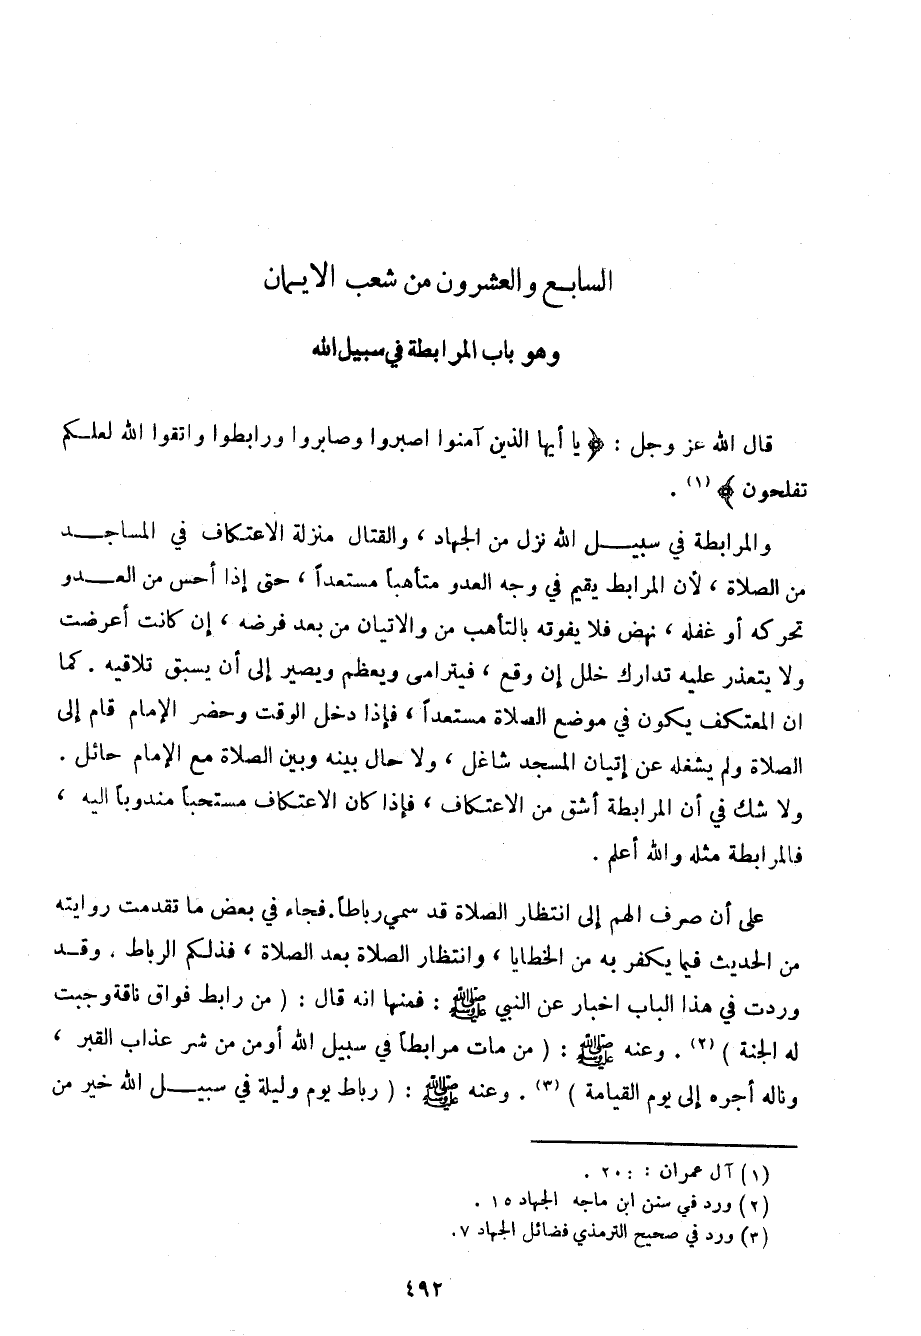 السابع والعشرون من شعب الايمان
وهو باب المرابطة في سبيل الله
قال الله عز وجل : ﴿ يا أيها الذين آمنوا اصبروا وصابروا ورابطوا واتقوا الله لعلكم
تفلحون ﴾ (١) .
والمرابطة في سبيل الله نزل من الجهاد ، والقتال منزلة الاعتكاف في المساجد
من الصلاة ، لأن المرابط يقيم في وجه العدو متأهباً مستعداً ، حتى إذا أحس من العدو
تحركه أو غفله ، نهض فلا يفوته بالتأهب من والاتيان من بعد فرضه ، إن كانت أعرضت
ولا يتعذر عليه تدارك خلل إن وقع ، فيترامى ويعظم ويصير إلى أن يسبق تلاقيه . كما
ان المعتكف يكون في موضع الصلاة مستعداً ، فإذا دخل الوقت وحضر الإمام قام إلى
الصلاة ولم يشغله عن إتيان المسجد شاغل ، ولا حال بينه وبين الصلاة مع الإمام حائل .
ولا شك في أن المرابطة أشق من الاعتكاف ، فإذا كان الاعتكاف مستحباً مندوباً اليه ،
فالمرابطة مثله والله أعلم .
على أن صرف الهم إلى انتظار الصلاة قد سمي رباطاً . فجاء في بعض ما تقدمت روايته
من الحديث فيما يكفر به من الخطايا ، وانتظار الصلاة بعد الصلاة ، فذلكم الرباط . وقد
وردت في هذا الباب اخبار عن النبي ﷺ : فمنها انه قال : ( من رابط فواق ناقة وجبت
له الجنة ) (٢) . وعنه ﷺ : ( من مات مرابطاً في سبيل الله أومن من شر عذاب القبر ،
وناله أجره إلى يوم القيامة ) (٣) . وعنه ﷺ : ( رباط يوم وليلة في سبيل الله خير من
(١) آل عمران : ٢٠٠ .
(٢) ورد في سنن ابن ماجه الجهاد ١٥ .
(٣) ورد في صحيح الترمذي فضائل الجهاد ٧ .
٤٩٢